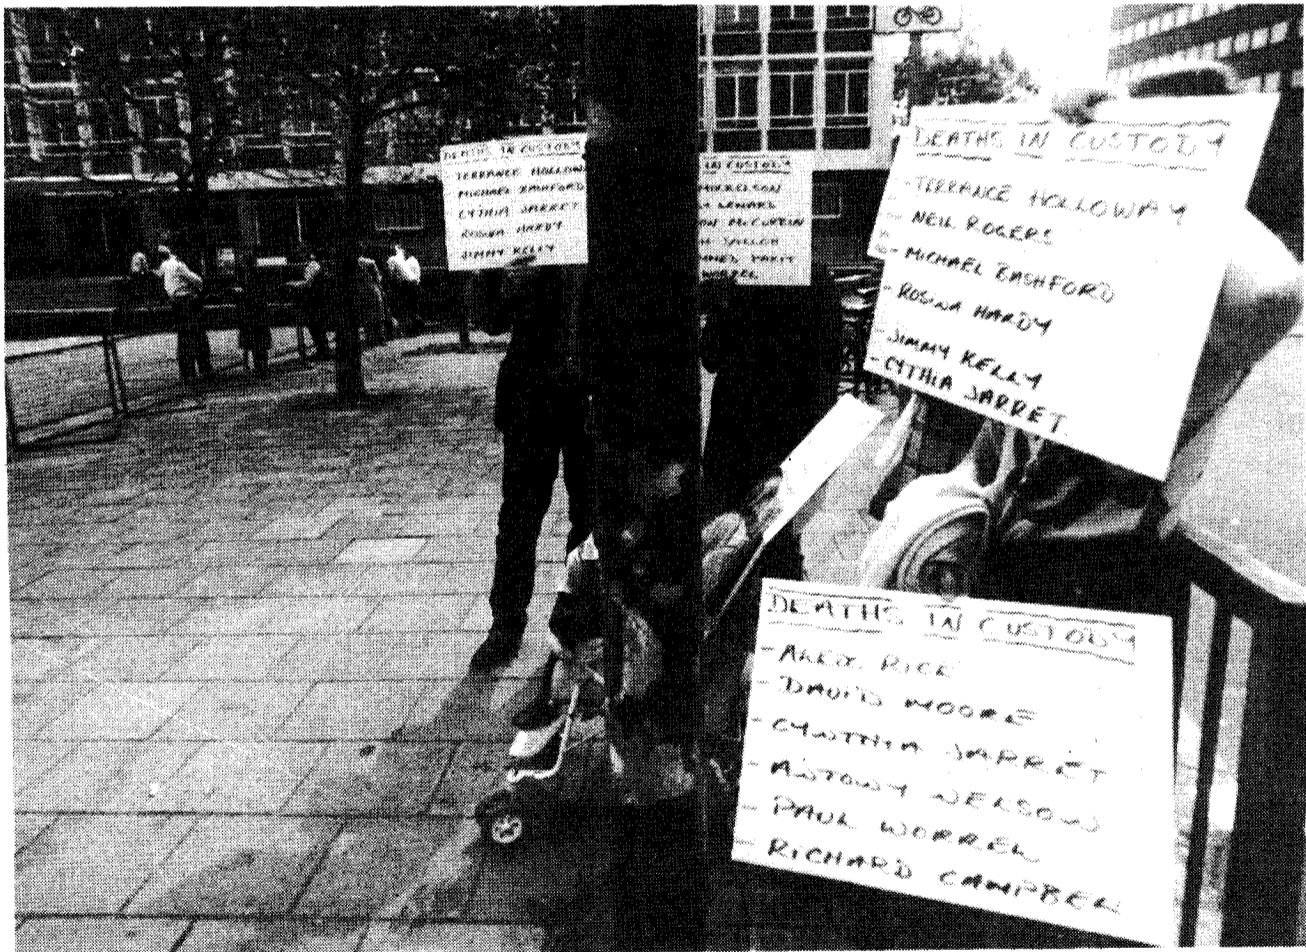 DEATHS IN CUSTODY
- TERRANCE HOLLOW
- MICHAEL BASHFORD
- CYTHIA JARRET
- ROSINA HARDY
JIMMY KELLY
IN CUSTODY
MIKKELSON
WORREL
DEATHS IN CUSTODY
- TERRANCE HOLLOWAY
- NEIL ROGERS
- MICHAEL BASHFORD
- ROSINA HARDY
- JIMMY KELLY
- CYTHIA JARRET
DEATHS IN CUSTODY
- ALEX RICE
- DAVID MOORE
- CYNTHIA JARRET
- ANTONY NELSON
- PAUL WORREL
- RICHARD CAMPBEL